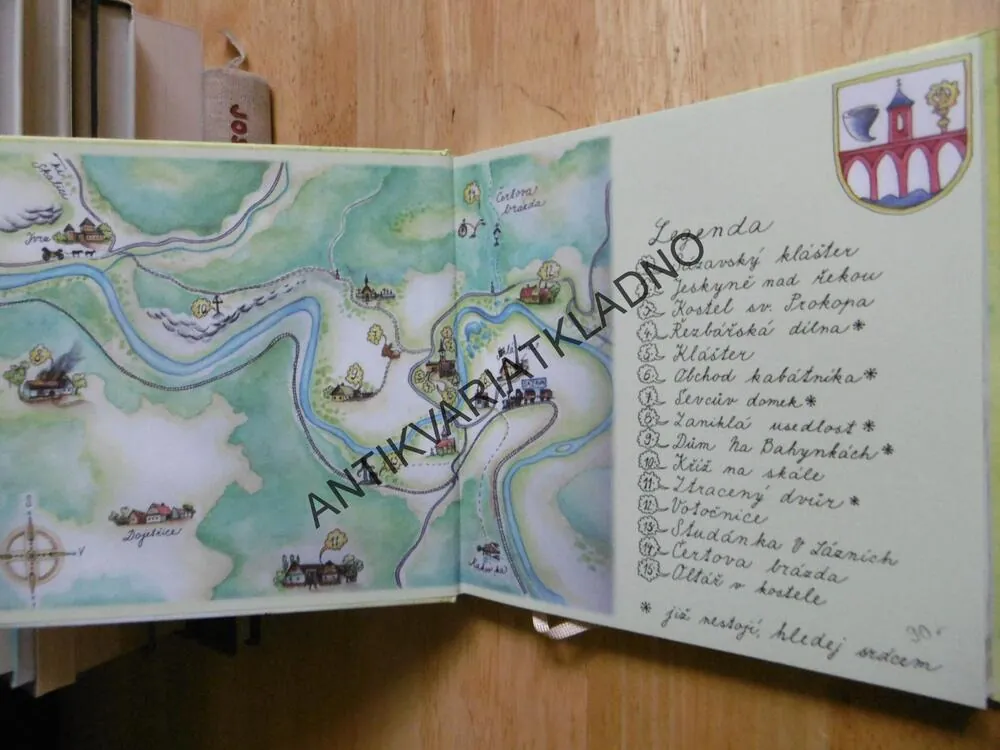 JOS
Skalici
Čertova
brázda
Dojetřice
S
V
Legenda
Sázavský klášter
2 Jeskyně nad řekou
3 Kostel sv. Prokopa
4 Řezbářská dílna *
5 Klášter
6 Obchod kabátníka *
7 Ševcův domek *
8 Zaniklá usedlost *
9 Dům Na Bahynkách *
10 Kříž na skále
11 Ztracený dvůr *
12 Votočnice
13 Studánka V Lázních
14 Čertova brázda
15 Oltář v kostele
* již nestojí, hledej srdcem
30
ANTIKVARIATKLADNO